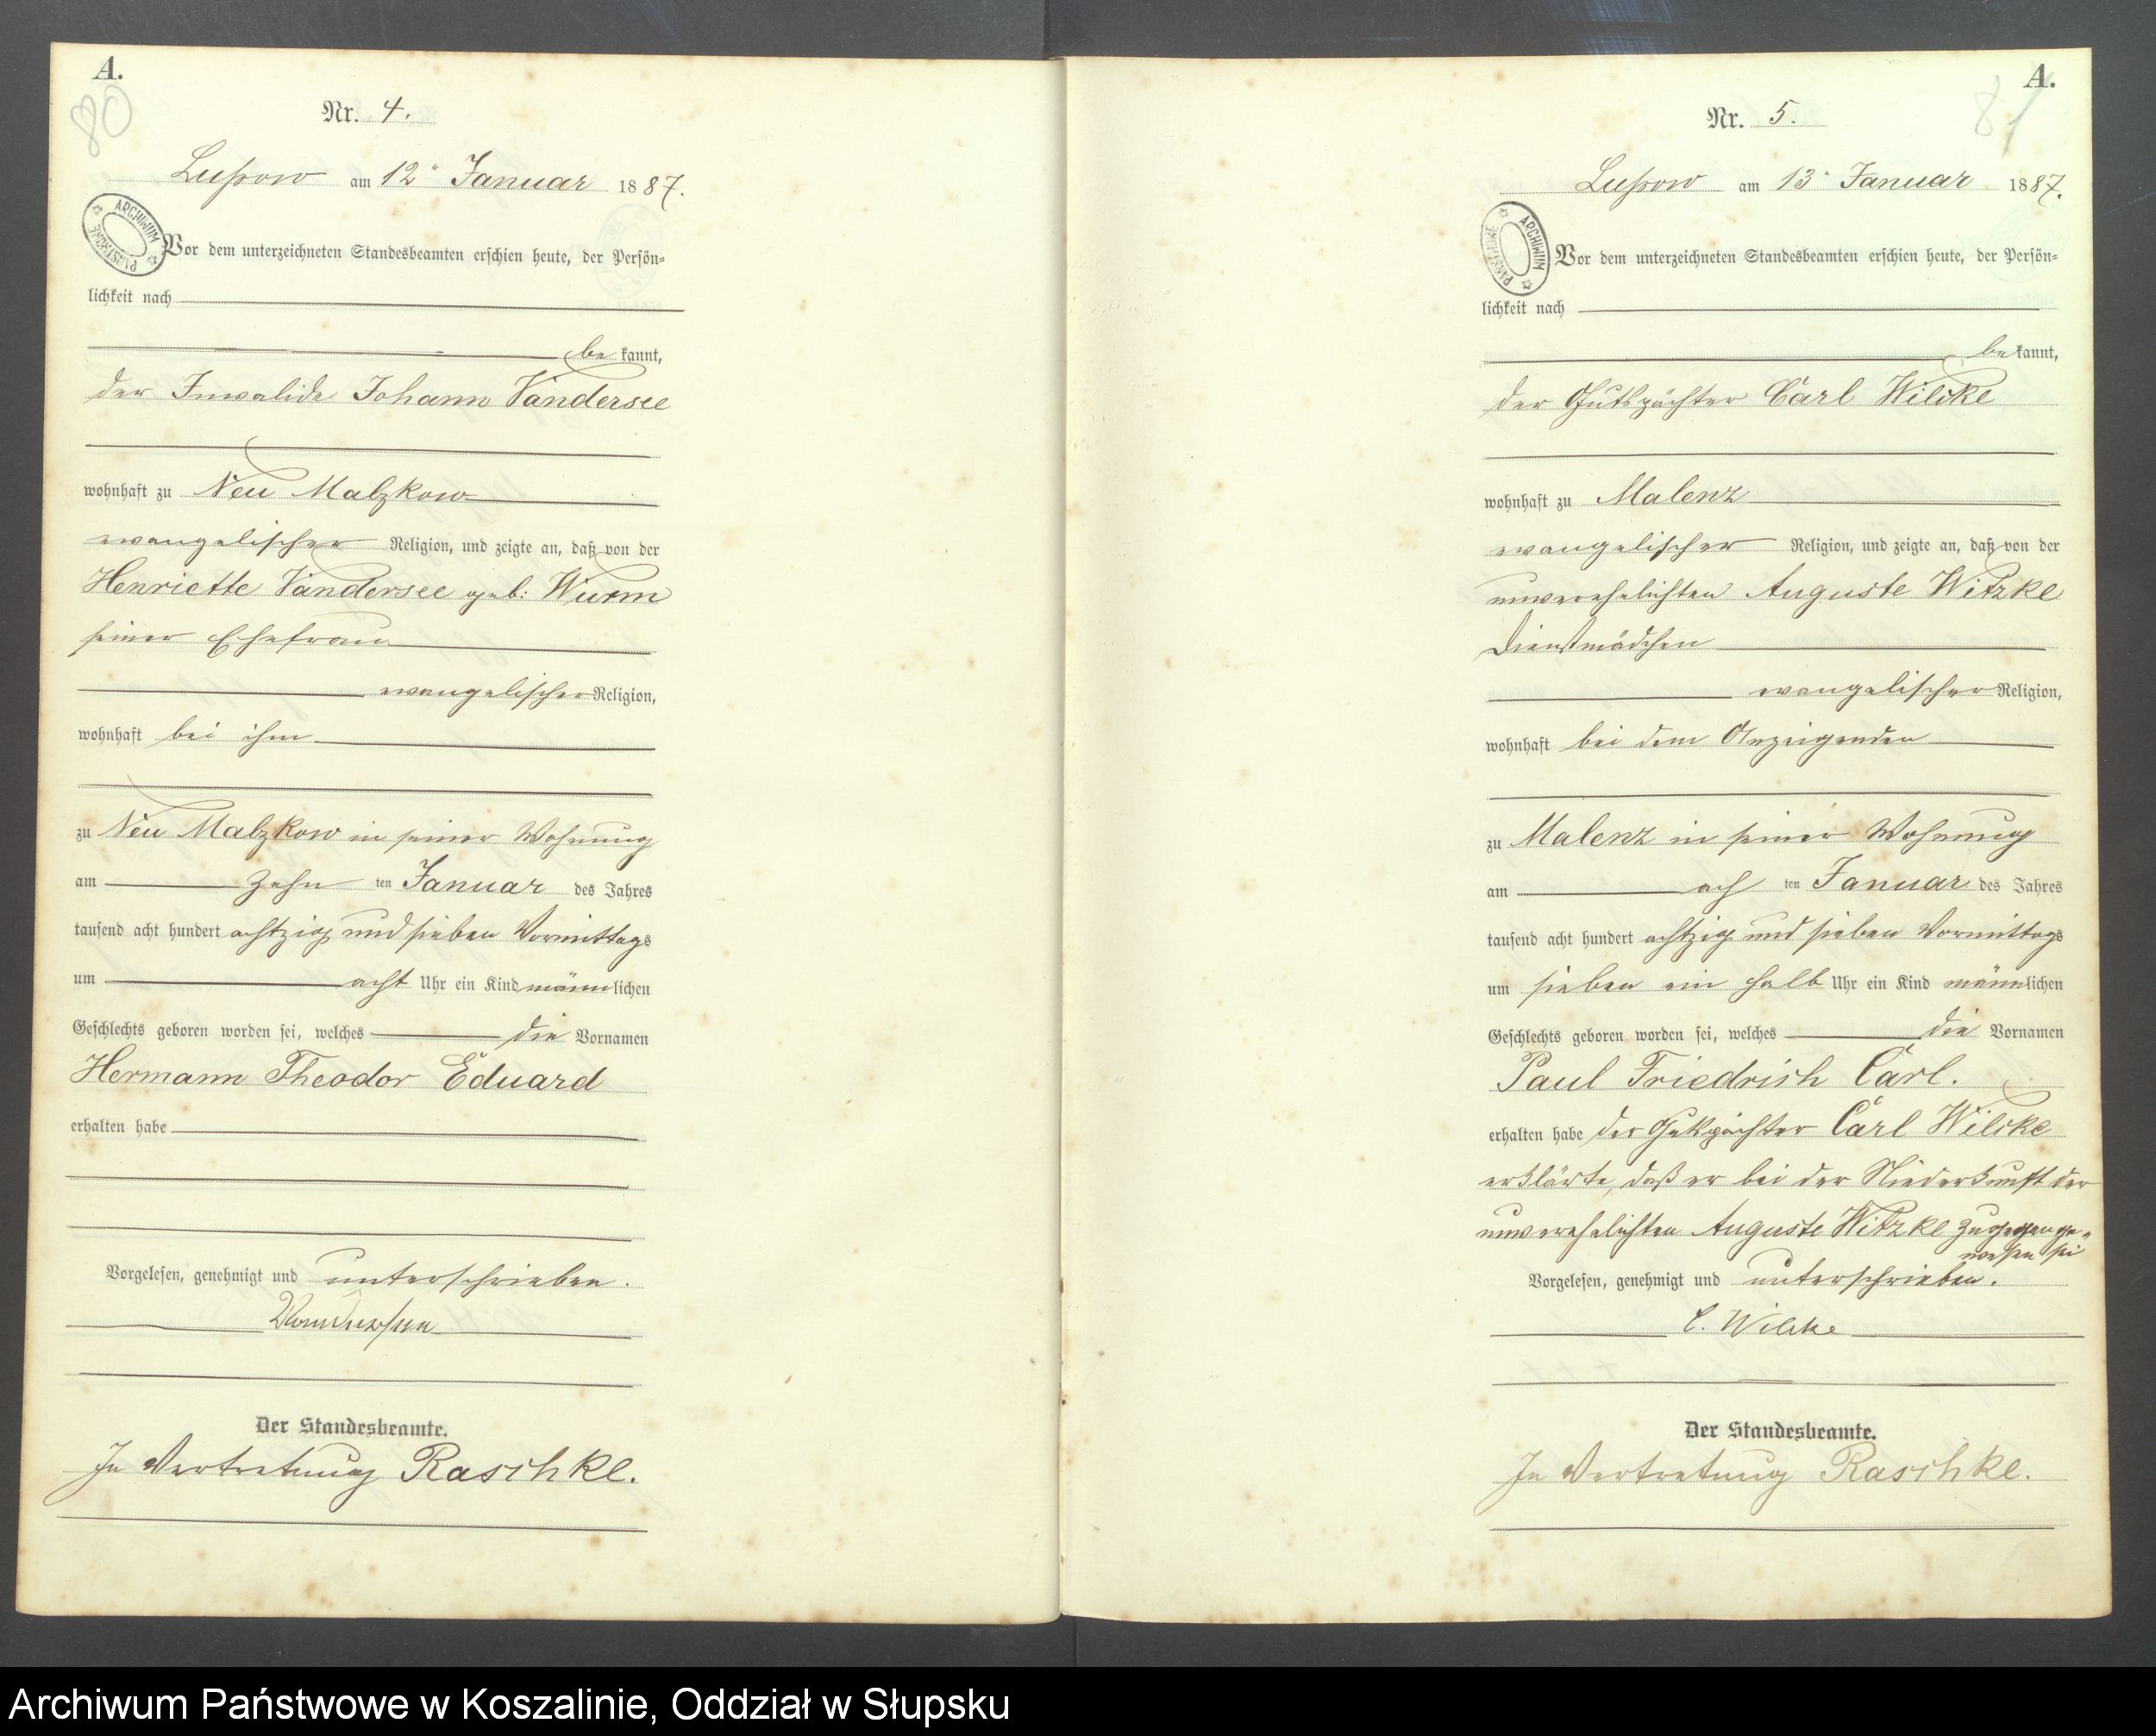 A.
80
Nr. 4.
Lupow am 12" Januar 1887.
ARCHIWUM PAŃSTWOWE
Vor dem unterzeichneten Standesbeamten erschien heute, der Persön-
lichkeit nach
bekannt,
der Invalide Johann Vandersee
wohnhaft zu Neu Malzkow
evangelischer Religion, und zeigte an, daß von der
Henriette Vandersee geb: Wurm
seiner Ehefrau
evangelischer Religion,
wohnhaft bei ihm
zu Neu Malzkow in seiner Wohnung
am zehn ten Januar des Jahres
tausend acht hundert achtzig und sieben Vormittags
um acht Uhr ein Kind männlichen
Geschlechts geboren worden sei, welches die Vornamen
Hermann Theodor Eduard
erhalten habe
Vorgelesen, genehmigt und unterschrieben.
Der Standesbeamte.
In Vertretung Raschke.
A.
81
Nr. 5.
Lupow am 13" Januar 1887.
ARCHIWUM PAŃSTWOWE
Vor dem unterzeichneten Standesbeamten erschien heute, der Persön-
lichkeit nach
bekannt,
der Gutspächter Carl Wilcke
wohnhaft zu Malenz
evangelischer Religion, und zeigte an, daß von der
unverehelichten Auguste Witzke
Dienstmädchen
evangelischer Religion,
wohnhaft bei dem Anzeigenden
zu Malenz in seiner Wohnung
am ach ten Januar des Jahres
tausend acht hundert achtzig und sieben Vormittags
um sieben ein halb Uhr ein Kind männlichen
Geschlechts geboren worden sei, welches die Vornamen
Paul Friedrich Carl.
erhalten habe der Gutspächter Carl Wilcke
erklärte, daß er bei der Niederkunft der
unverehelichten Auguste Witzke zugegen ge-
wesen sei
Vorgelesen, genehmigt und unterschrieben.
C. Wilcke
Der Standesbeamte.
In Vertretung Raschke.
Archiwum Państwowe w Koszalinie, Oddział w Słupsku